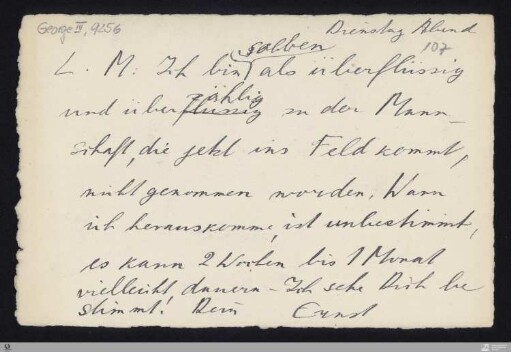 George III, 9256
Dienstag Abend
107
soeben
L. M: Ich bin als überflüssig
zählig
und überflüssig zu der Mann-
schaft, die jetzt ins Feld kommt,
nicht genommen worden. Wann
ich herauskomme, ist unbestimmt,
es kann 2 Wochen bis 1 Monat
vielleicht dauern – Ich sehe Dich be
stimmt! Dein Ernst